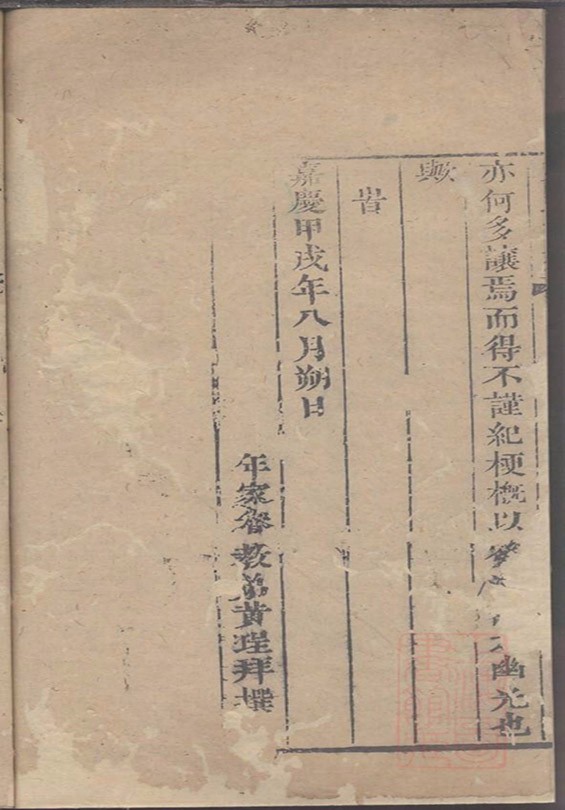 亦何多讓焉而得不謹紀梗概以幽光也
歟
旹
嘉慶甲戌年八月朔日
年家眷教弟黃珵拜撰